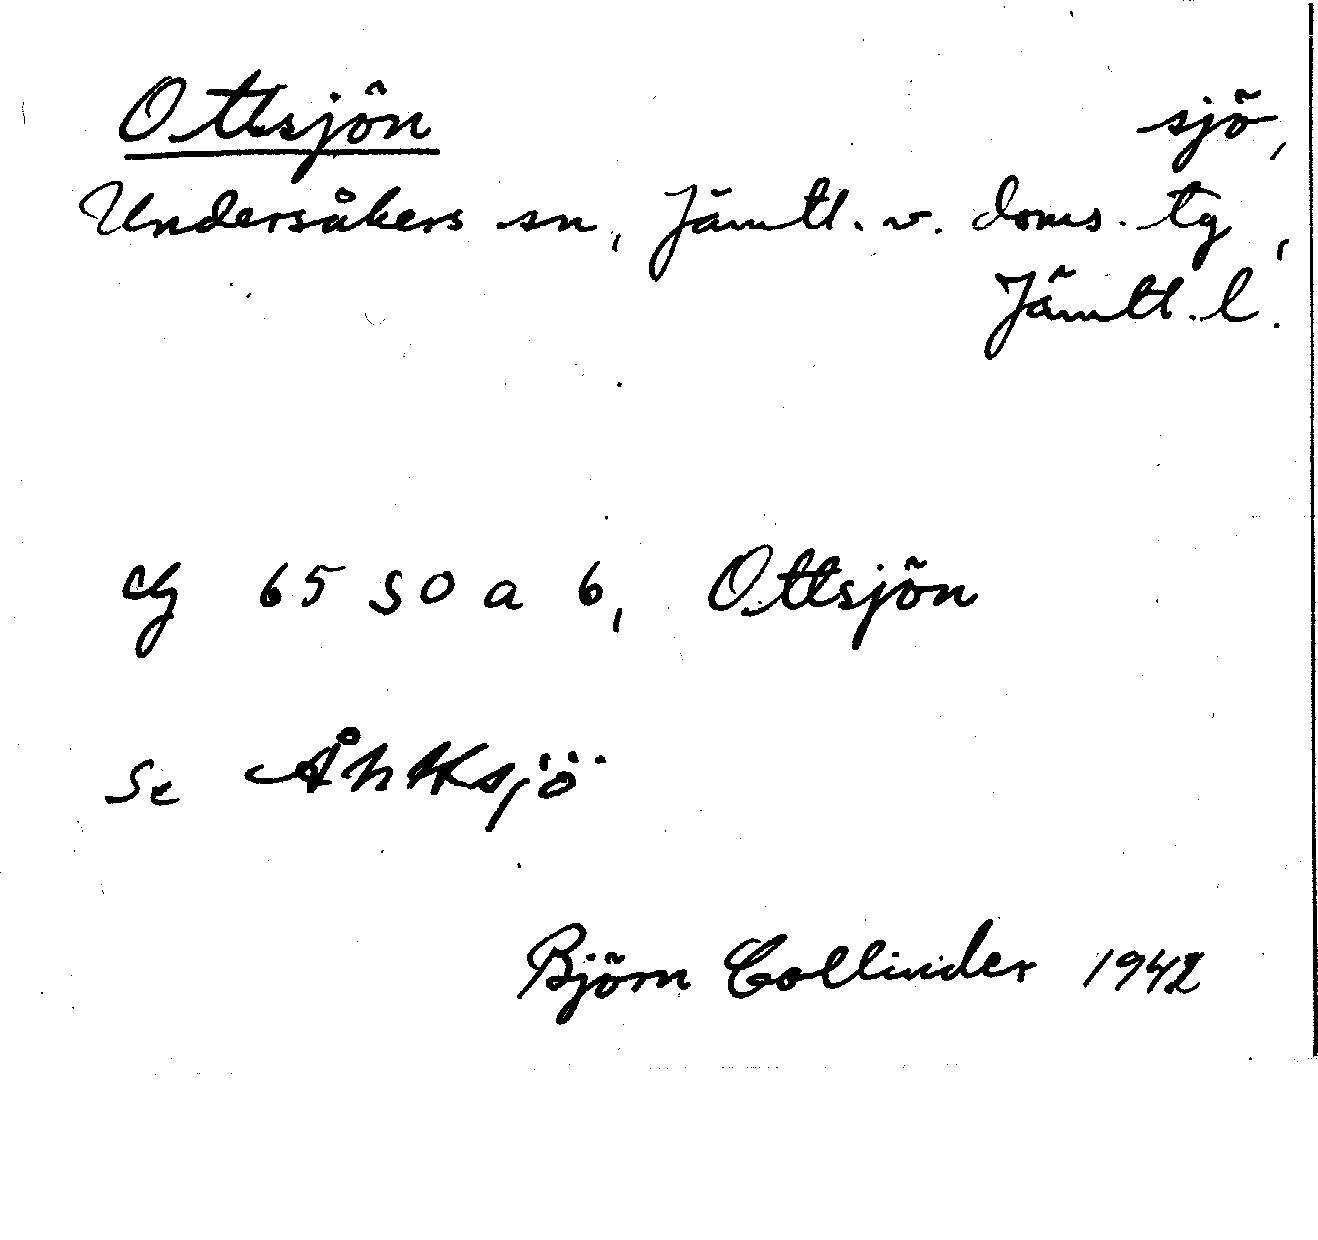 Ottsjön sjö,
Undersåkers sn, Jämtl. v. doms. tg,
Jämtl. l.
cg 65 SO a 6, Ottsjön
Se Åhttsjö
Björn Collinder 1942